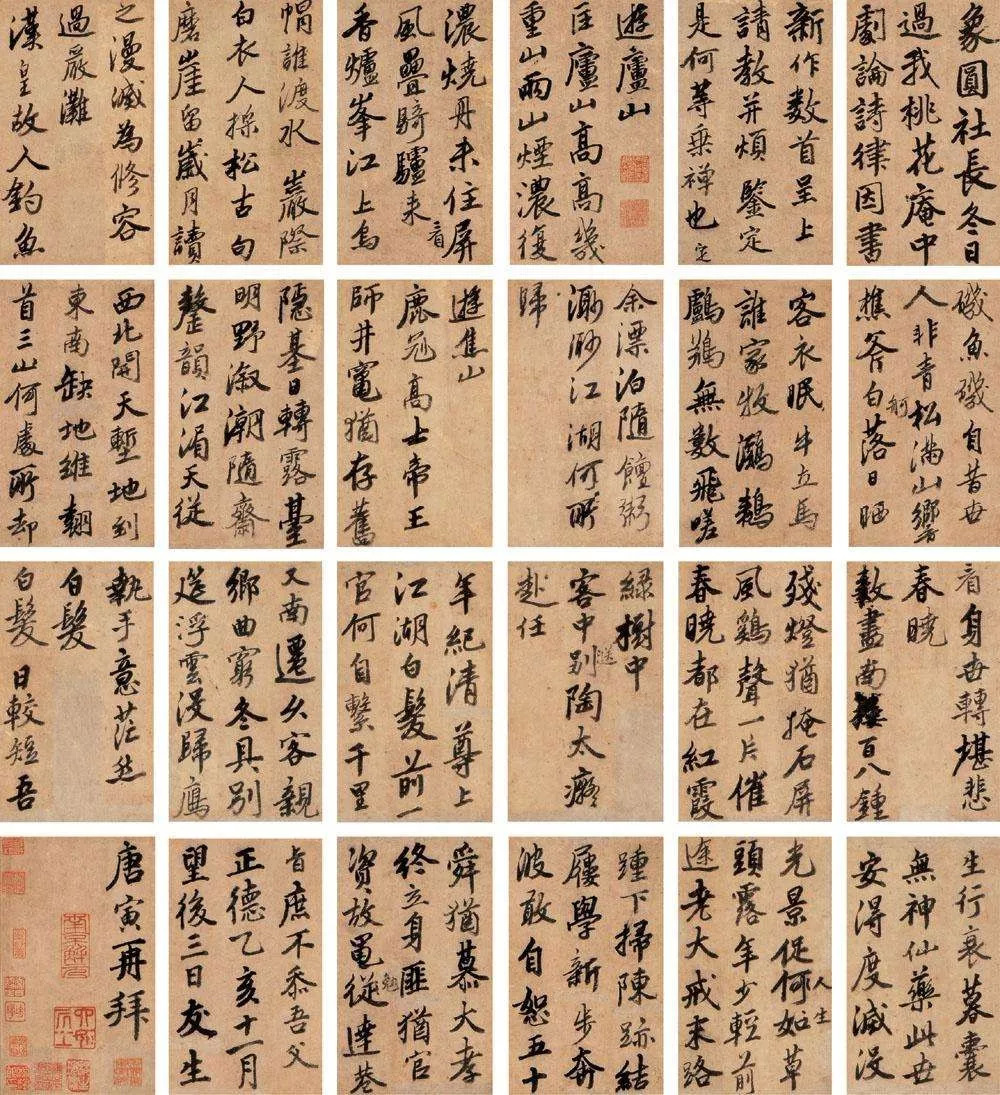 象圓社長冬日
過我桃花庵中
劇論詩律因書
新作數首呈上
請教并煩鑒定
是何等乘禪也定
遊廬山
匡廬山高高幾
重山雨山煙濃復
濃燒丹未住屏
風疊騎驢來看
香爐峯江上烏
帽誰渡水巖際
白衣人採松古句
磨崖留歲月讀
之漫滅為修容
過嚴灘
漢皇故人釣魚
磯魚磯自昔世
人非青松滿山響
樵斧白舸落日晒
客衣眠牛立馬
誰家牧鸂鶒
鸕鷀無數飛嗟
余漂泊隨饘粥
渺渺江湖何所
歸
遊焦山
鹿冠高士帝王
師井竈猶存舊
隱基日轉露臺
明野溆潮隨齋
韻江湄天從
西北開天塹地到
東南缺地維翻
首三山何處所却
看身世轉堪悲
春曉
數盡南樓百八鍾
殘燈猶掩石屏
風鷄聲一片催
春曉都在紅霞
綠樹中
客中送別陶太癡
赴任
年紀清尊上
江湖白髮前一
官何自繫千里
又南遷久客親
鄉曲窮冬具別
筵浮雲沒歸鴈
執手意茫然
白髮
白髮日較短吾
生行衰暮囊
無神仙藥此世
安得度滅沒
光景促人生何如草
頭露年少輕前
途老大戒末路
踵下掃陳跡結
屨學新步奔
波敢自恕五十
舜猶慕大孝
終立身匪猶官
資放黽勉從達巷
旨庶不忝吾父
正德乙亥十一月
望後三日友生
唐寅再拜